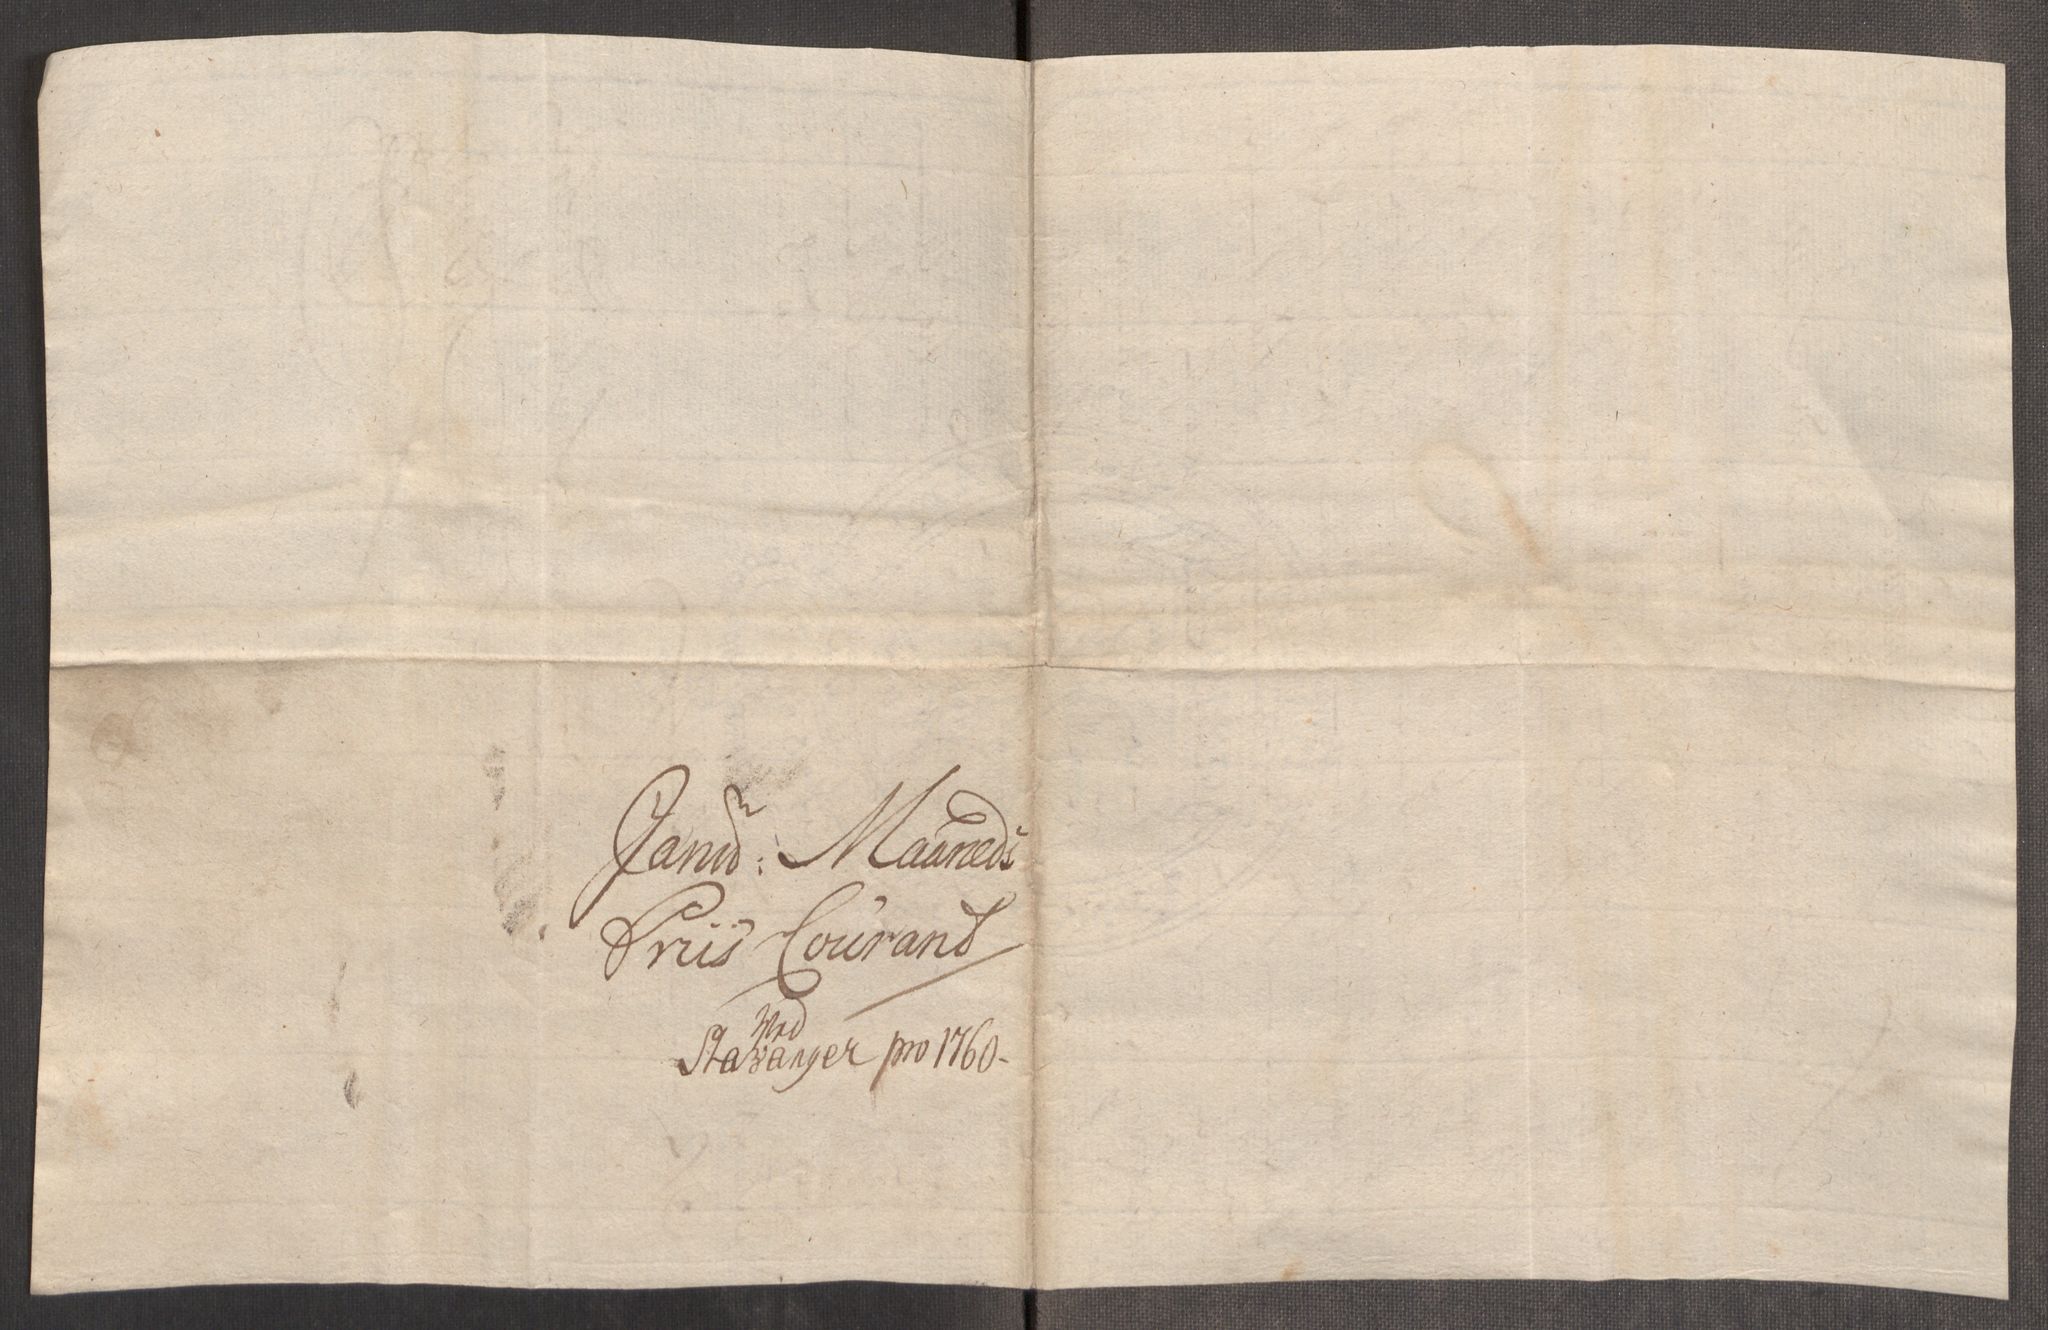 Janu͞r: Maaneds
Priis Courant
Ved
Stavanger pro 1760-